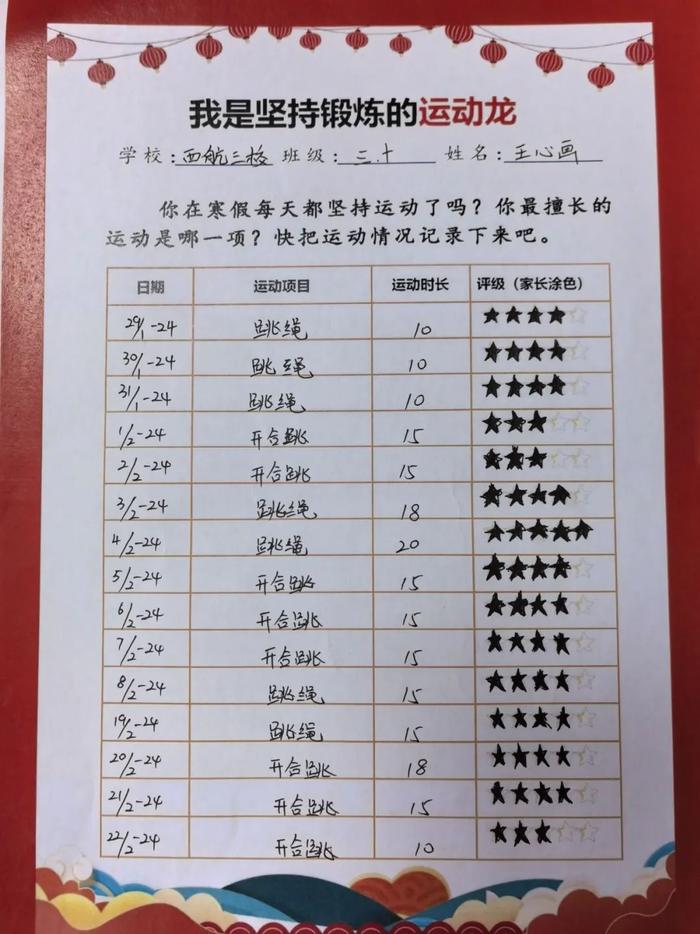 我是坚持锻炼的运动龙
学校:西航三校 班级:三.十 姓名:王心画
你在寒假每天都坚持运动了吗?你最擅长的
运动是哪一项?快把运动情况记录下来吧。
日期 运动项目 运动时长 评级(家长涂色)
29/1-24 跳绳 10
30/1-24 跳绳 10
31/1-24 跳绳 10
1/2-24 开合跳 15
2/2-24 开合跳 15
3/2-24 跳绳 18
4/2-24 跳绳 20
5/2-24 开合跳 15
6/2-24 开合跳 15
7/2-24 开合跳 15
8/2-24 跳绳 15
19/2-24 跳绳 15
20/2-24 开合跳 18
21/2-24 开合跳 15
22/2-24 开合跳 10